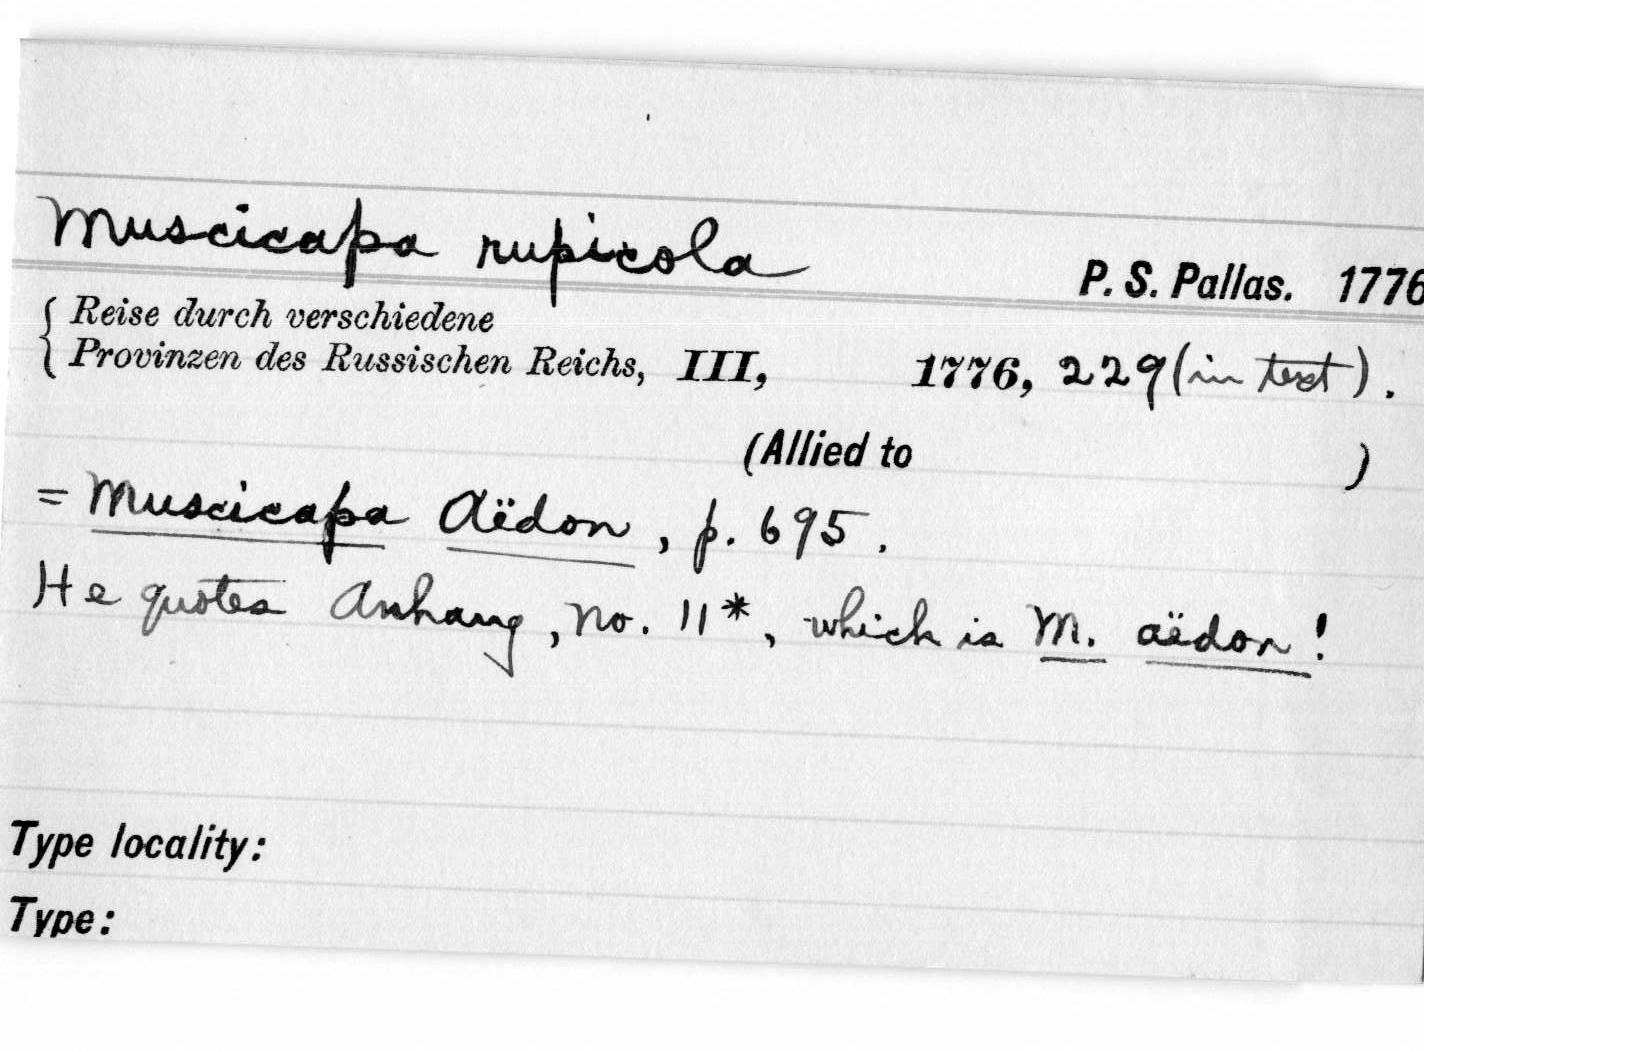 Muscicapa rupicola
P. S. Pallas. 1776
Reise durch verschiedene
Provinzen des Russischen Reichs, III, 1776, 229 (in text).
(Allied to )
= Muscicapa Aëdon, p. 695.
He quotes Anhang, No. 11*, which is M. aëdon!
Type locality:
Type: